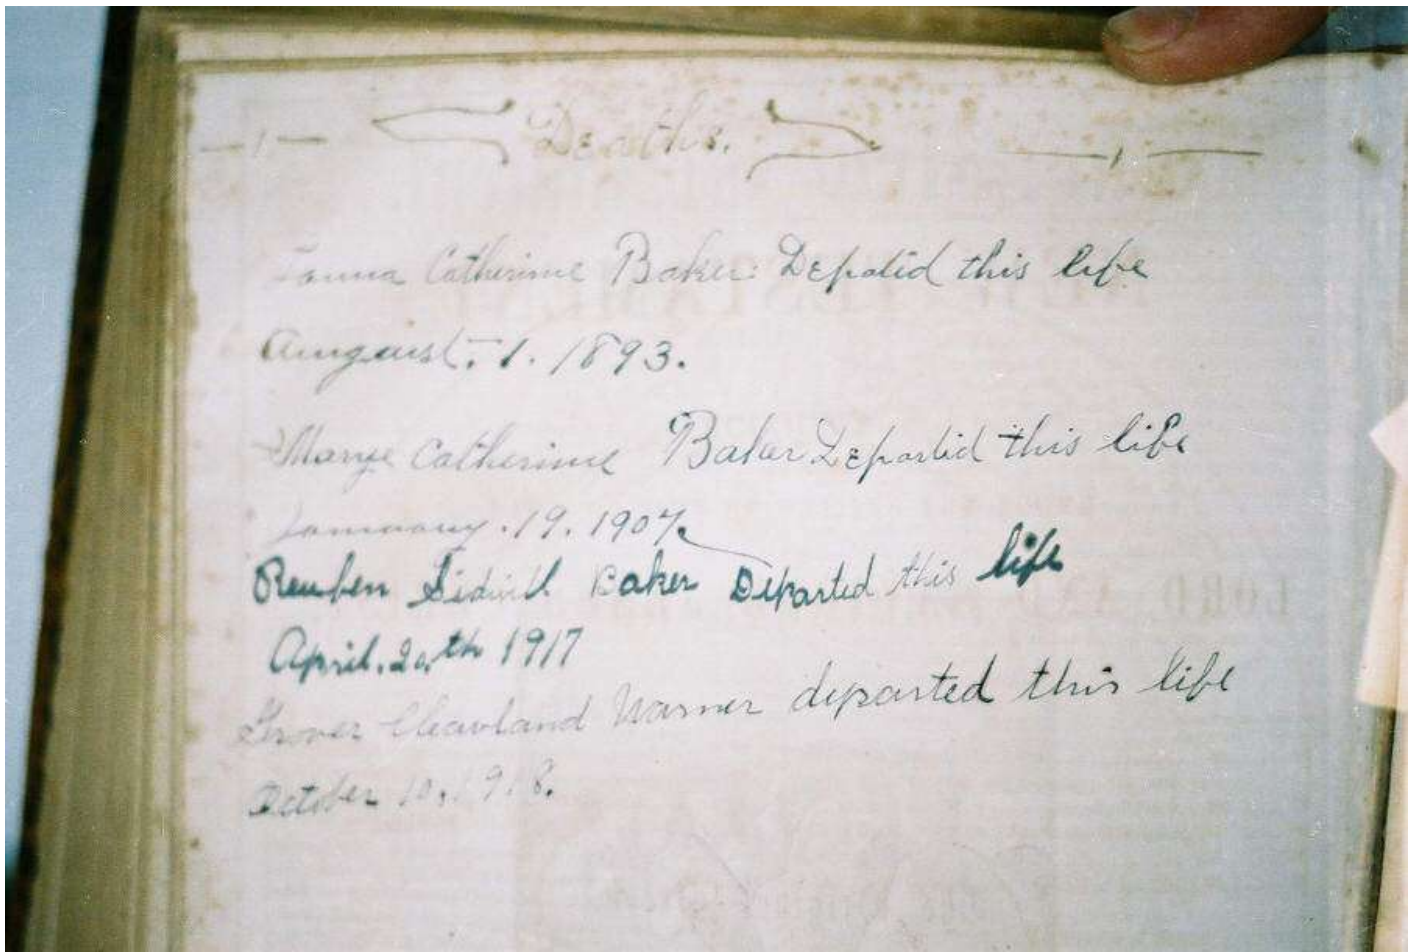 Deaths.
Catherine Baker Depatid this life
Aungaust. 1. 1893.
Marye Catherine Baker Departid this life
January. 19. 1907.
Reuben Baker Departed this life
April. 20.th 1917
Grover Cleavland Warner departed this life
October 10, 1918.